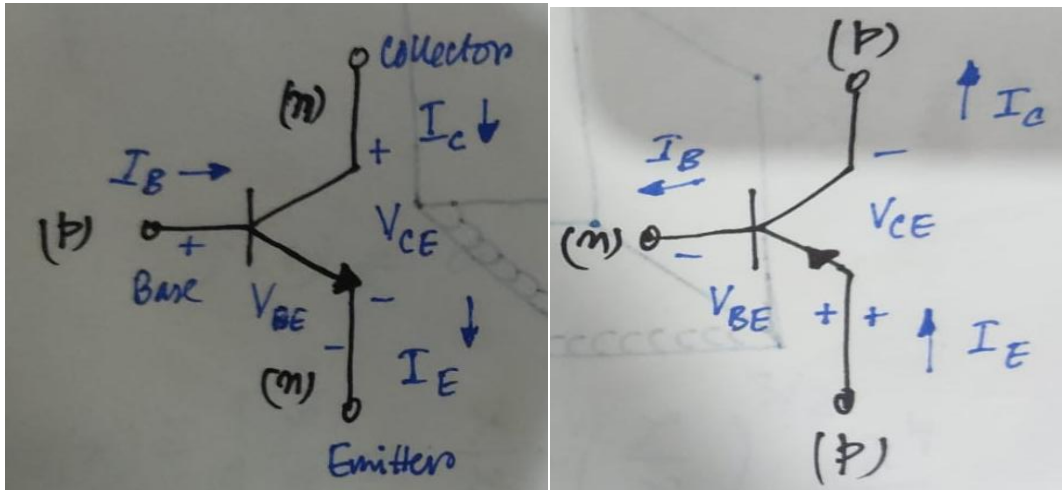 Collector
(n)
I_C ↓
+
I_B →
(p)
+
V_CE
Base
V_BE
-
-
(n)
I_E ↓
Emitter
(p)
I_C ↑
-
I_B ←
(n)
-
V_CE
V_BE
+ +
I_E ↑
(p)